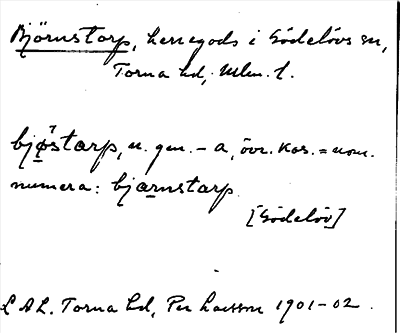 Björnstorp, herregods i Gödelövs sn,
Torna hd, Mlm. l.
bjøstarp, n. gen. - a, övr. kas. = nom.
numera: bjarnstarp.
[Gödelöv]
L A L. Torna hd, Per Larsson 1901-02.